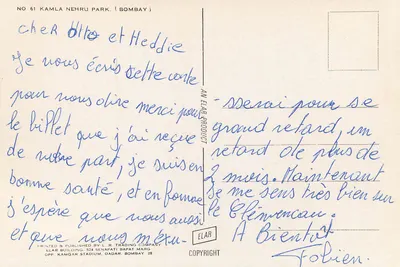 NO 61 KAMLA NEHRU PARK. (BOMBAY)
cher Otto et Heddie
Je vous écris cette carte
pour vous dire merci pour
le billet que j'ai reçue
de votre part, je suis en
bonne santé, et en forme
j'espère que vous aussi
et que vous m'exu-
PRINTED & PUBLISHED BY L. R. TRADING COMPANY
ELAR BUILDING 534 SENAPATI BAPAT MARG
OPP. RAMSAY STADIUM, DADAR BOMBAY 28
AN ELAR PRODUCT
ELAR
COPYRIGHT
-sserai pour se
grand retard, un
retard de plus de
2 mois. Maintenant
je me sens très bien sur
le Clémenceau.
A Bientôt
Fabien.